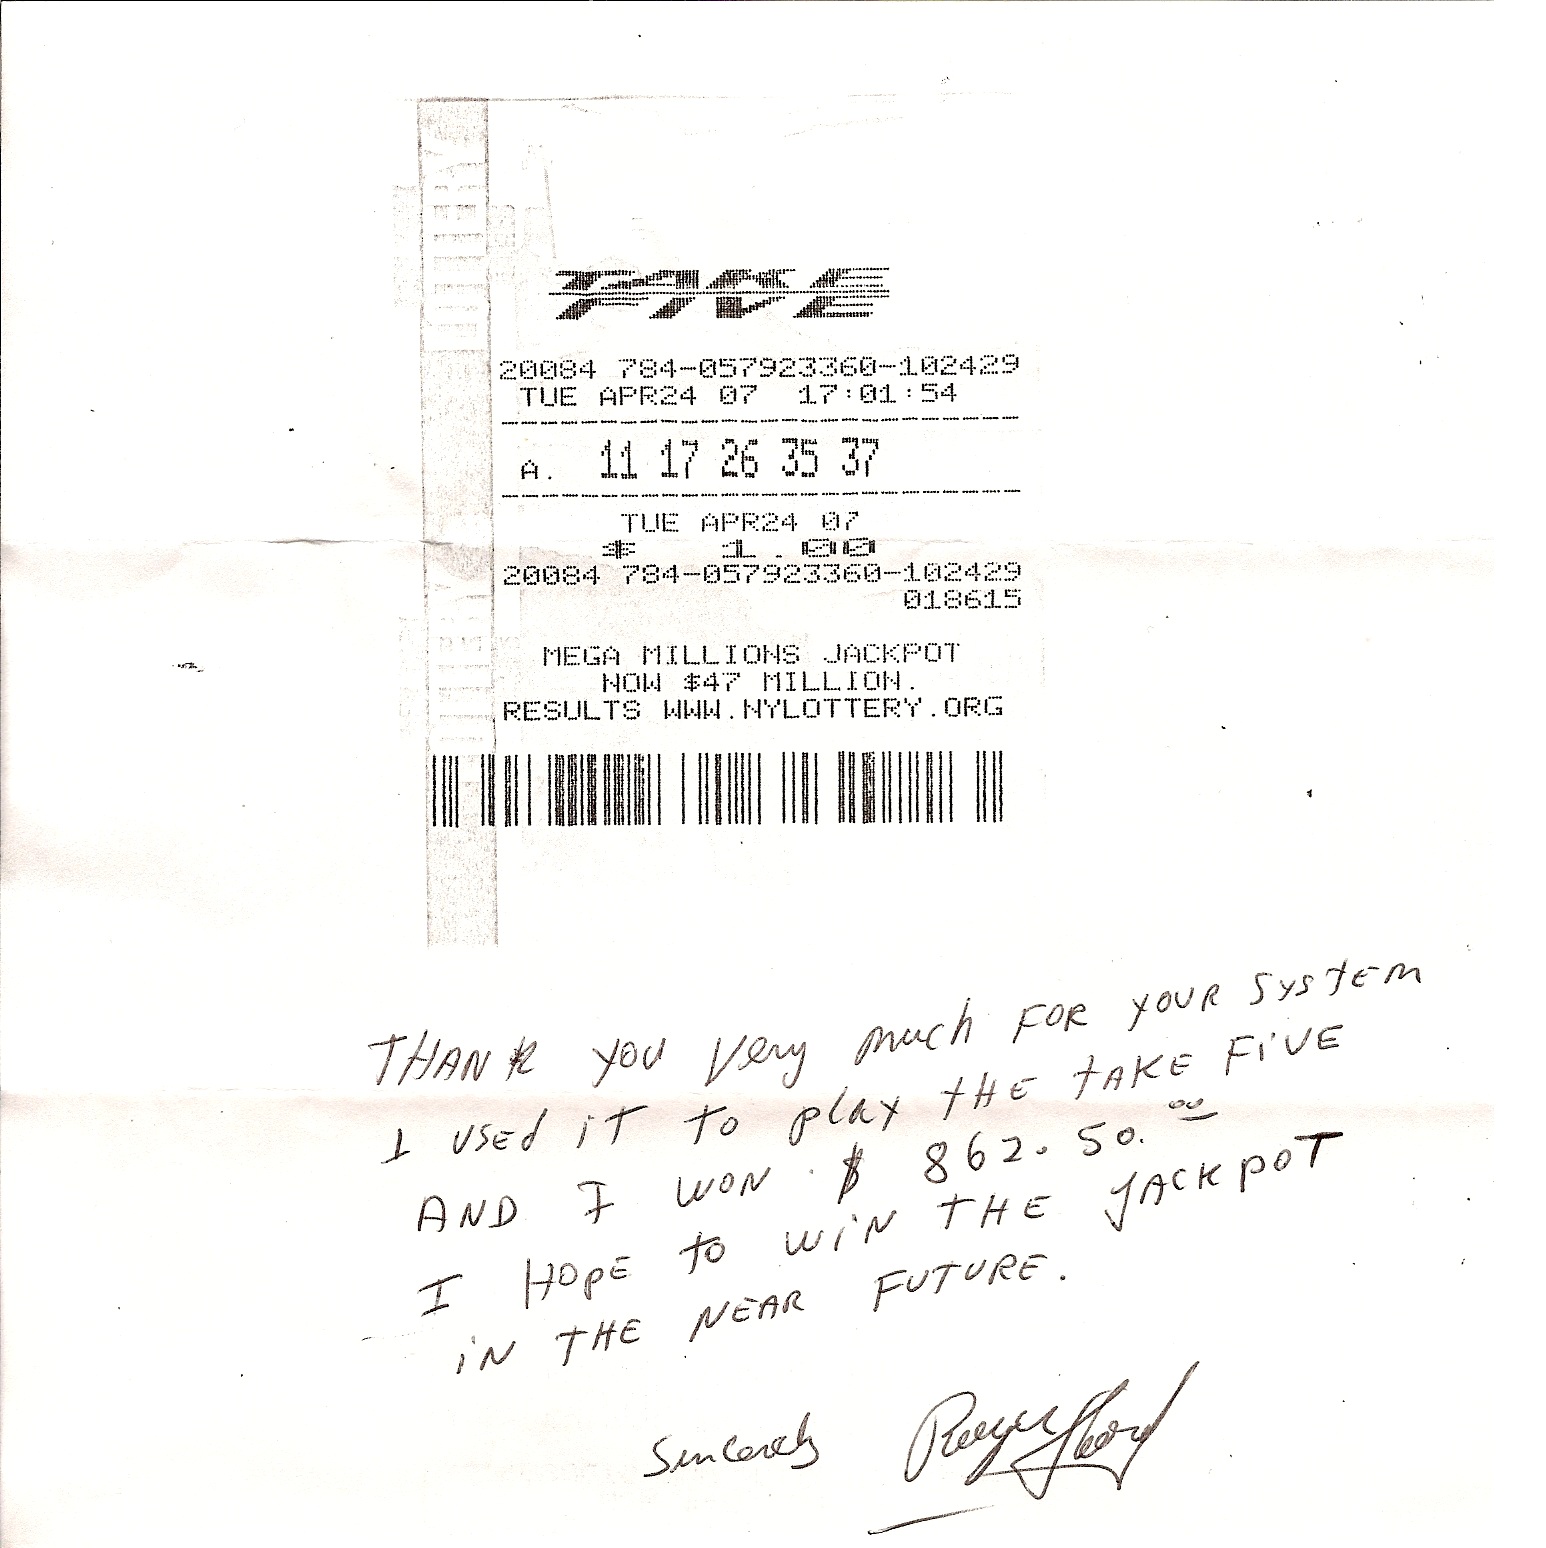 20084 784-057923360-102429
TUE APR24 07 17:01:54
A. 11 17 26 35 37
TUE APR24 07
$ 1.00
20084 784-057923360-102429
018615
MEGA MILLIONS JACKPOT
NOW $47 MILLION.
RESULTS WWW.NYLOTTERY.ORG
THANK you Very much FOR YOUR SYSTEM
I used iT TO play tHE tAKE FiVE
AND I WON $ 862.50.00
I HOPE to WiN THE JACKPOT
iN THE NEAR FUTURE.
Sincerely